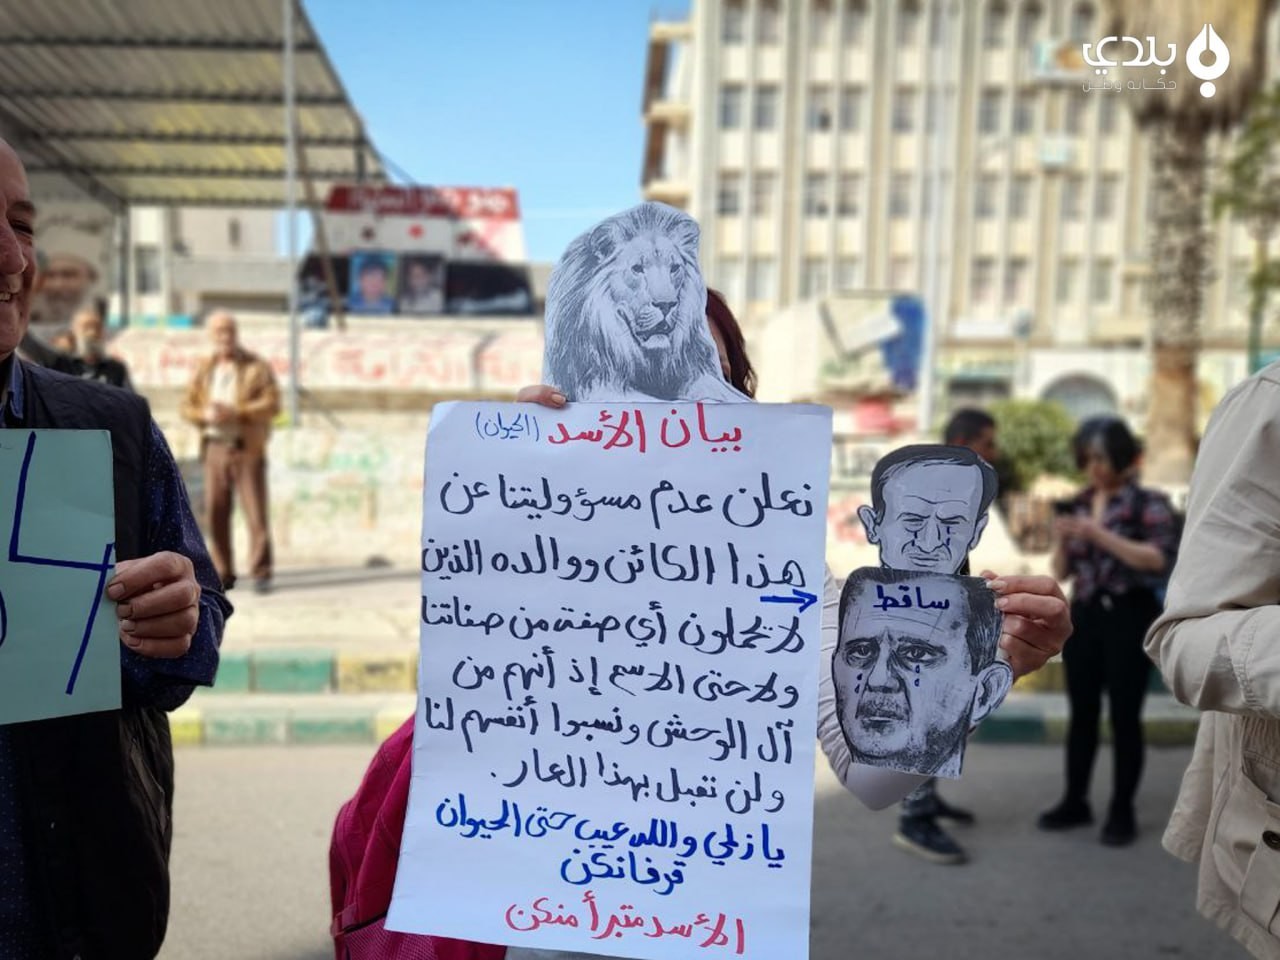 بلدي
حكاية وطن
بيان الأسد (الحيوان)
نعلن عدم مسؤوليتنا عن
هذا الكائن ووالده الذين
لا تحملون أي صفة من صفاتنا
ولا حتى الاسم إذ أنهم من
آل الوحش ونسبوا أنفسهم لنا
ولن نقبل بهذا العار.
يا زلمي والله عيب حتى الحيوان
قرفانكن
الأسد متبرأ منكن
ساقط
4